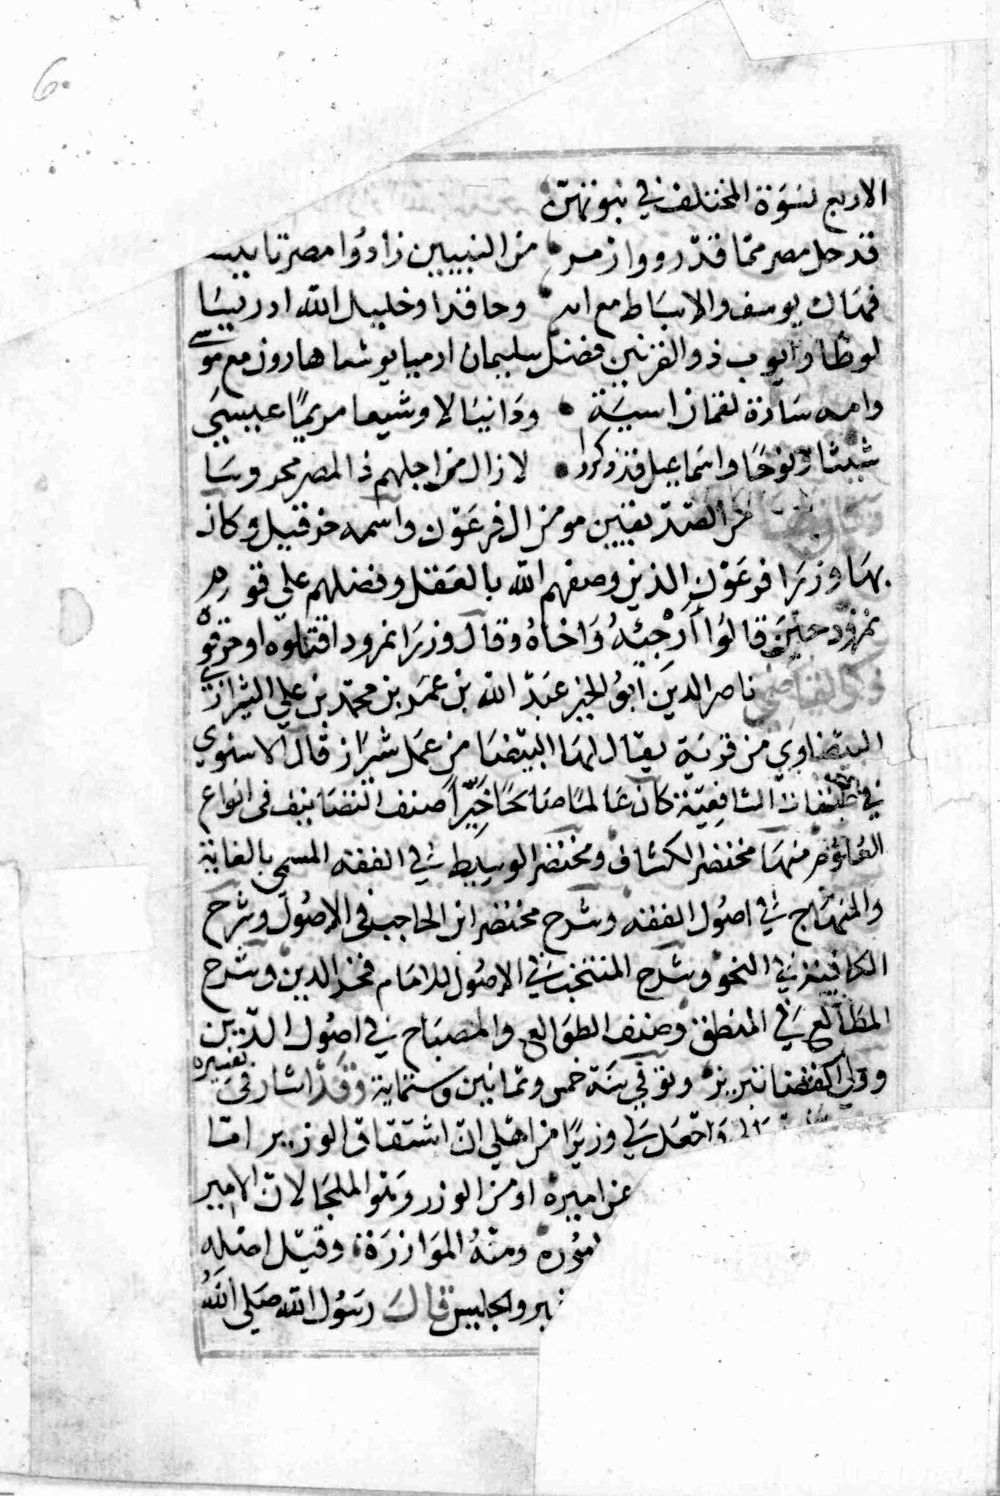 6
الاربع نسوة المختلف في نبوتهن
قد حل مصر مما قد رووا زمر من النبيين زادوا مصر تانيسا
فهاك يوسف والاسباط مع اب وحافدا وخليل الله ادريسا
لوطا وايوب ذو القرنين فضل سليمان ارميا يوشعا هارون مع موسى
وامه سارة لقمان اسية ودانيالا وشعيا مريما عيسى
شيثا ونوحا واسماعيل قد ذكروا لا زال من اجلهم ذا المصر محروسا
الصديقين مومن ال فرعون واسمه حزقيل وكان
بها وزرا فرعون الذين وصفهم الله بالعقل وفضلهم على قوم
نمرود حين قالوا أرجئه واخاه وقال وزرا نمرود اقتلوه او حرقوه
ذكر القاضي ناصر الدين ابو الخير عبد الله بن عمر بن محمد بن علي الشيرازي
البيضاوي من قرية يقال لها البيضا من عمل شيراز قال الاسنوي
في طبقات الشافعية كان عالما صالحا خيرا صنف التصانيف في انواع
العلوم منها مختصر الكشاف ومختصر الوسيط في الفقه المسمى بالغاية
والمنهاج في اصول الفقه وشرح مختصر ابن الحاجب في الاصول وشرح
الكافية في النحو وشرح المنتخب في الاصول للامام فخر الدين وشرح
المطالع في المنطق وصنف الطوالع والمصباح في اصول الدين
وولي القضا بتبريز وتوفي سنة خمس وثمانين وستماية وقد اشار في تفسيره
واجعل لي وزيرا من اهلي ان اشتقاق الوزير اما
عن اميره او من الوزر وهو الملجا لان الامير
اموره ومنه الموازرة وقيل اصله
والجليس قال رسول الله صلى الله